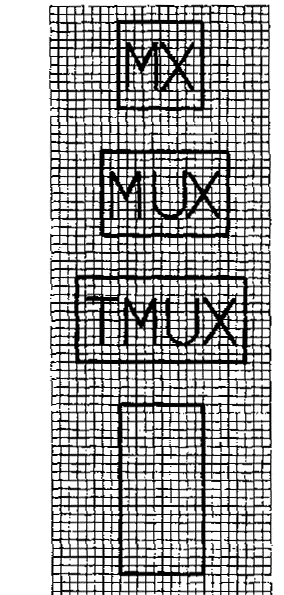 MX
MUX
TMUX